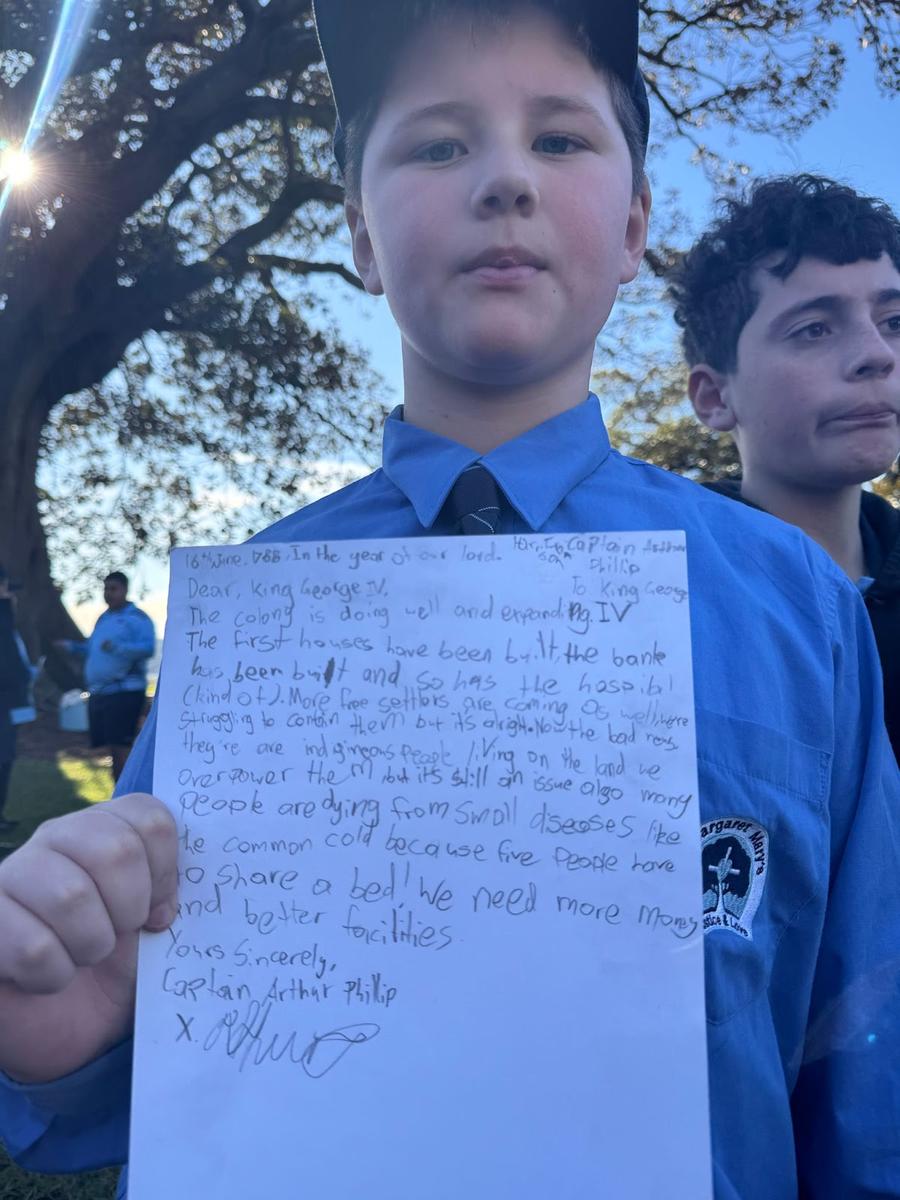 16th June, 1788. In the year of our lord. Captain Arthur
Phillip
Dear, King George IV, To King George
The colony is doing well and expanding. IV
The first houses have been built, the bank
has been built and so has the hospibl
(kind of). More free settlers are coming as well, were
struggling to contain them but its alright. Now the bad news
they're are indigineous people living on the land we
overpower them but it's still an issue also many
people are dying from small diseases like
the common cold because five people have
to share a bed! We need more money
and better facilities.
Yours Sincerely,
Captain Arthur Phillip
X.
argaret Mary's
stice & Love